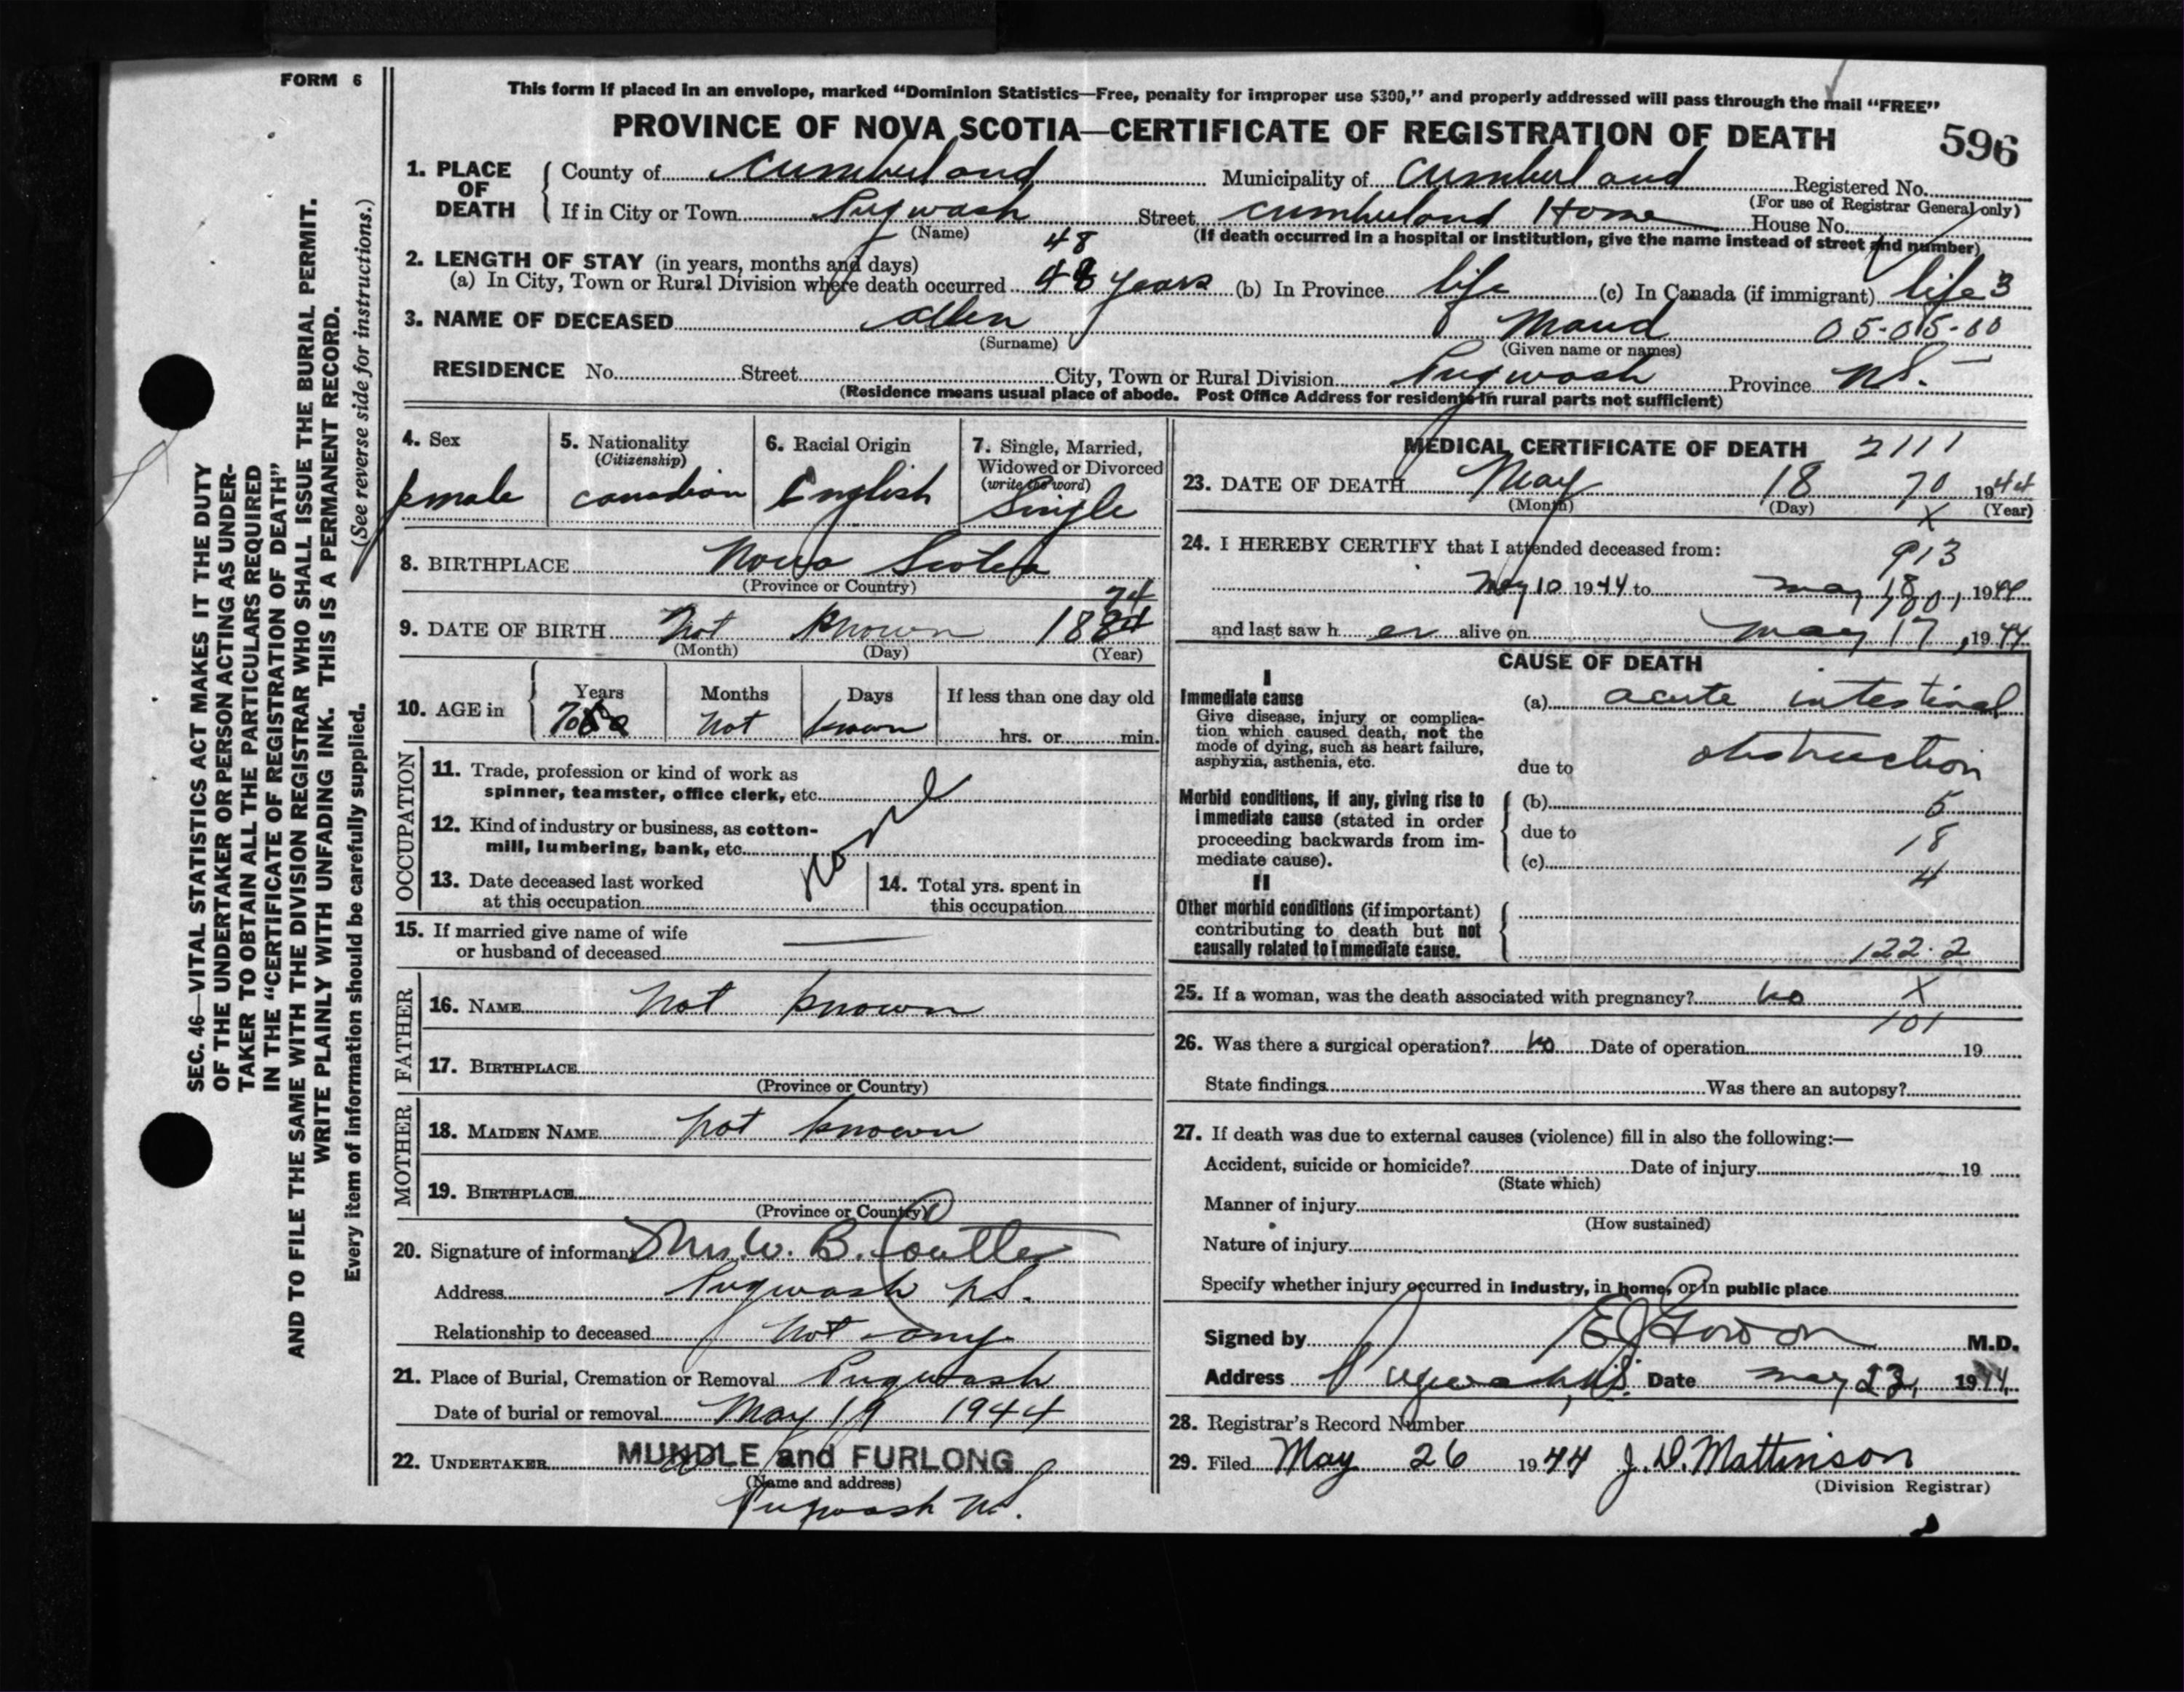 FORM 6
This form if placed in an envelope, marked “Dominion Statistics—Free, penalty for improper use $300,” and properly addressed will pass through the mail “FREE”
PROVINCE OF NOVA SCOTIA—CERTIFICATE OF REGISTRATION OF DEATH
596
1. PLACE OF DEATH { County of Cumberland Municipality of Cumberland Registered No.
(For use of Registrar General only)
If in City or Town Pugwash Street Cumberland Home House No.
(Name) (If death occurred in a hospital or institution, give the name instead of street and number)
2. LENGTH OF STAY (in years, months and days) 48
(a) In City, Town or Rural Division where death occurred 48 years (b) In Province life (c) In Canada (if immigrant) life 3
3. NAME OF DECEASED Allen Maud 05-05-00
(Surname) (Given name or names)
RESIDENCE No. Street City, Town or Rural Division Pugwash Province N.S.
(Residence means usual place of abode. Post Office Address for residents in rural parts not sufficient)
4. Sex
female
5. Nationality
(Citizenship)
Canadian
6. Racial Origin
English
7. Single, Married,
Widowed or Divorced
(write the word)
Single
8. BIRTHPLACE Nova Scotia
(Province or Country)
74
9. DATE OF BIRTH Not known 1884
(Month) (Day) (Year)
10. AGE in { Years Months Days If less than one day old
70 Not known hrs. or min.
OCCUPATION
11. Trade, profession or kind of work as
spinner, teamster, office clerk, etc.
12. Kind of industry or business, as cotton-
mill, lumbering, bank, etc.
None
13. Date deceased last worked
at this occupation
14. Total yrs. spent in
this occupation
15. If married give name of wife
or husband of deceased
FATHER
16. NAME Not known
17. BIRTHPLACE
(Province or Country)
MOTHER
18. MAIDEN NAME Not known
19. BIRTHPLACE
(Province or Country)
20. Signature of informant Mrs. W. B.
Address Pugwash N.S.
Relationship to deceased Not any
21. Place of Burial, Cremation or Removal Pugwash
Date of burial or removal May 19 1944
22. UNDERTAKER MUNDLE and FURLONG
(Name and address)
Pugwash N.S.
MEDICAL CERTIFICATE OF DEATH 2111
23. DATE OF DEATH May 18 70 1944
(Month) (Day) X (Year)
24. I HEREBY CERTIFY that I attended deceased from:
913
May 10 1944 to May 18, 1944
and last saw her alive on May 17, 1944
CAUSE OF DEATH
I
Immediate cause
Give disease, injury or complica-
tion which caused death, not the
mode of dying, such as heart failure,
asphyxia, asthenia, etc.
(a) acute intestinal
due to obstruction
Morbid conditions, if any, giving rise to
immediate cause (stated in order
proceeding backwards from im-
mediate cause).
(b) 5
due to 18
(c) 4
II
Other morbid conditions (if important)
contributing to death but not
causally related to immediate cause.
122.2
25. If a woman, was the death associated with pregnancy? no X
101
26. Was there a surgical operation? no Date of operation 19
State findings Was there an autopsy?
27. If death was due to external causes (violence) fill in also the following:—
Accident, suicide or homicide? Date of injury 19
(State which)
Manner of injury
(How sustained)
Nature of injury
Specify whether injury occurred in industry, in home, or in public place
Signed by E J Gordon M.D.
Address Pugwash, N.S. Date May 23, 1944
28. Registrar's Record Number
29. Filed May 26 1944 J. D. Mattinson
(Division Registrar)
SEC. 46—VITAL STATISTICS ACT MAKES IT THE DUTY
OF THE UNDERTAKER OR PERSON ACTING AS UNDER-
TAKER TO OBTAIN ALL THE PARTICULARS REQUIRED
IN THE “CERTIFICATE OF REGISTRATION OF DEATH”
AND TO FILE THE SAME WITH THE DIVISION REGISTRAR WHO SHALL ISSUE THE BURIAL PERMIT.
WRITE PLAINLY WITH UNFADING INK. THIS IS A PERMANENT RECORD.
Every item of information should be carefully supplied. (See reverse side for instructions.)